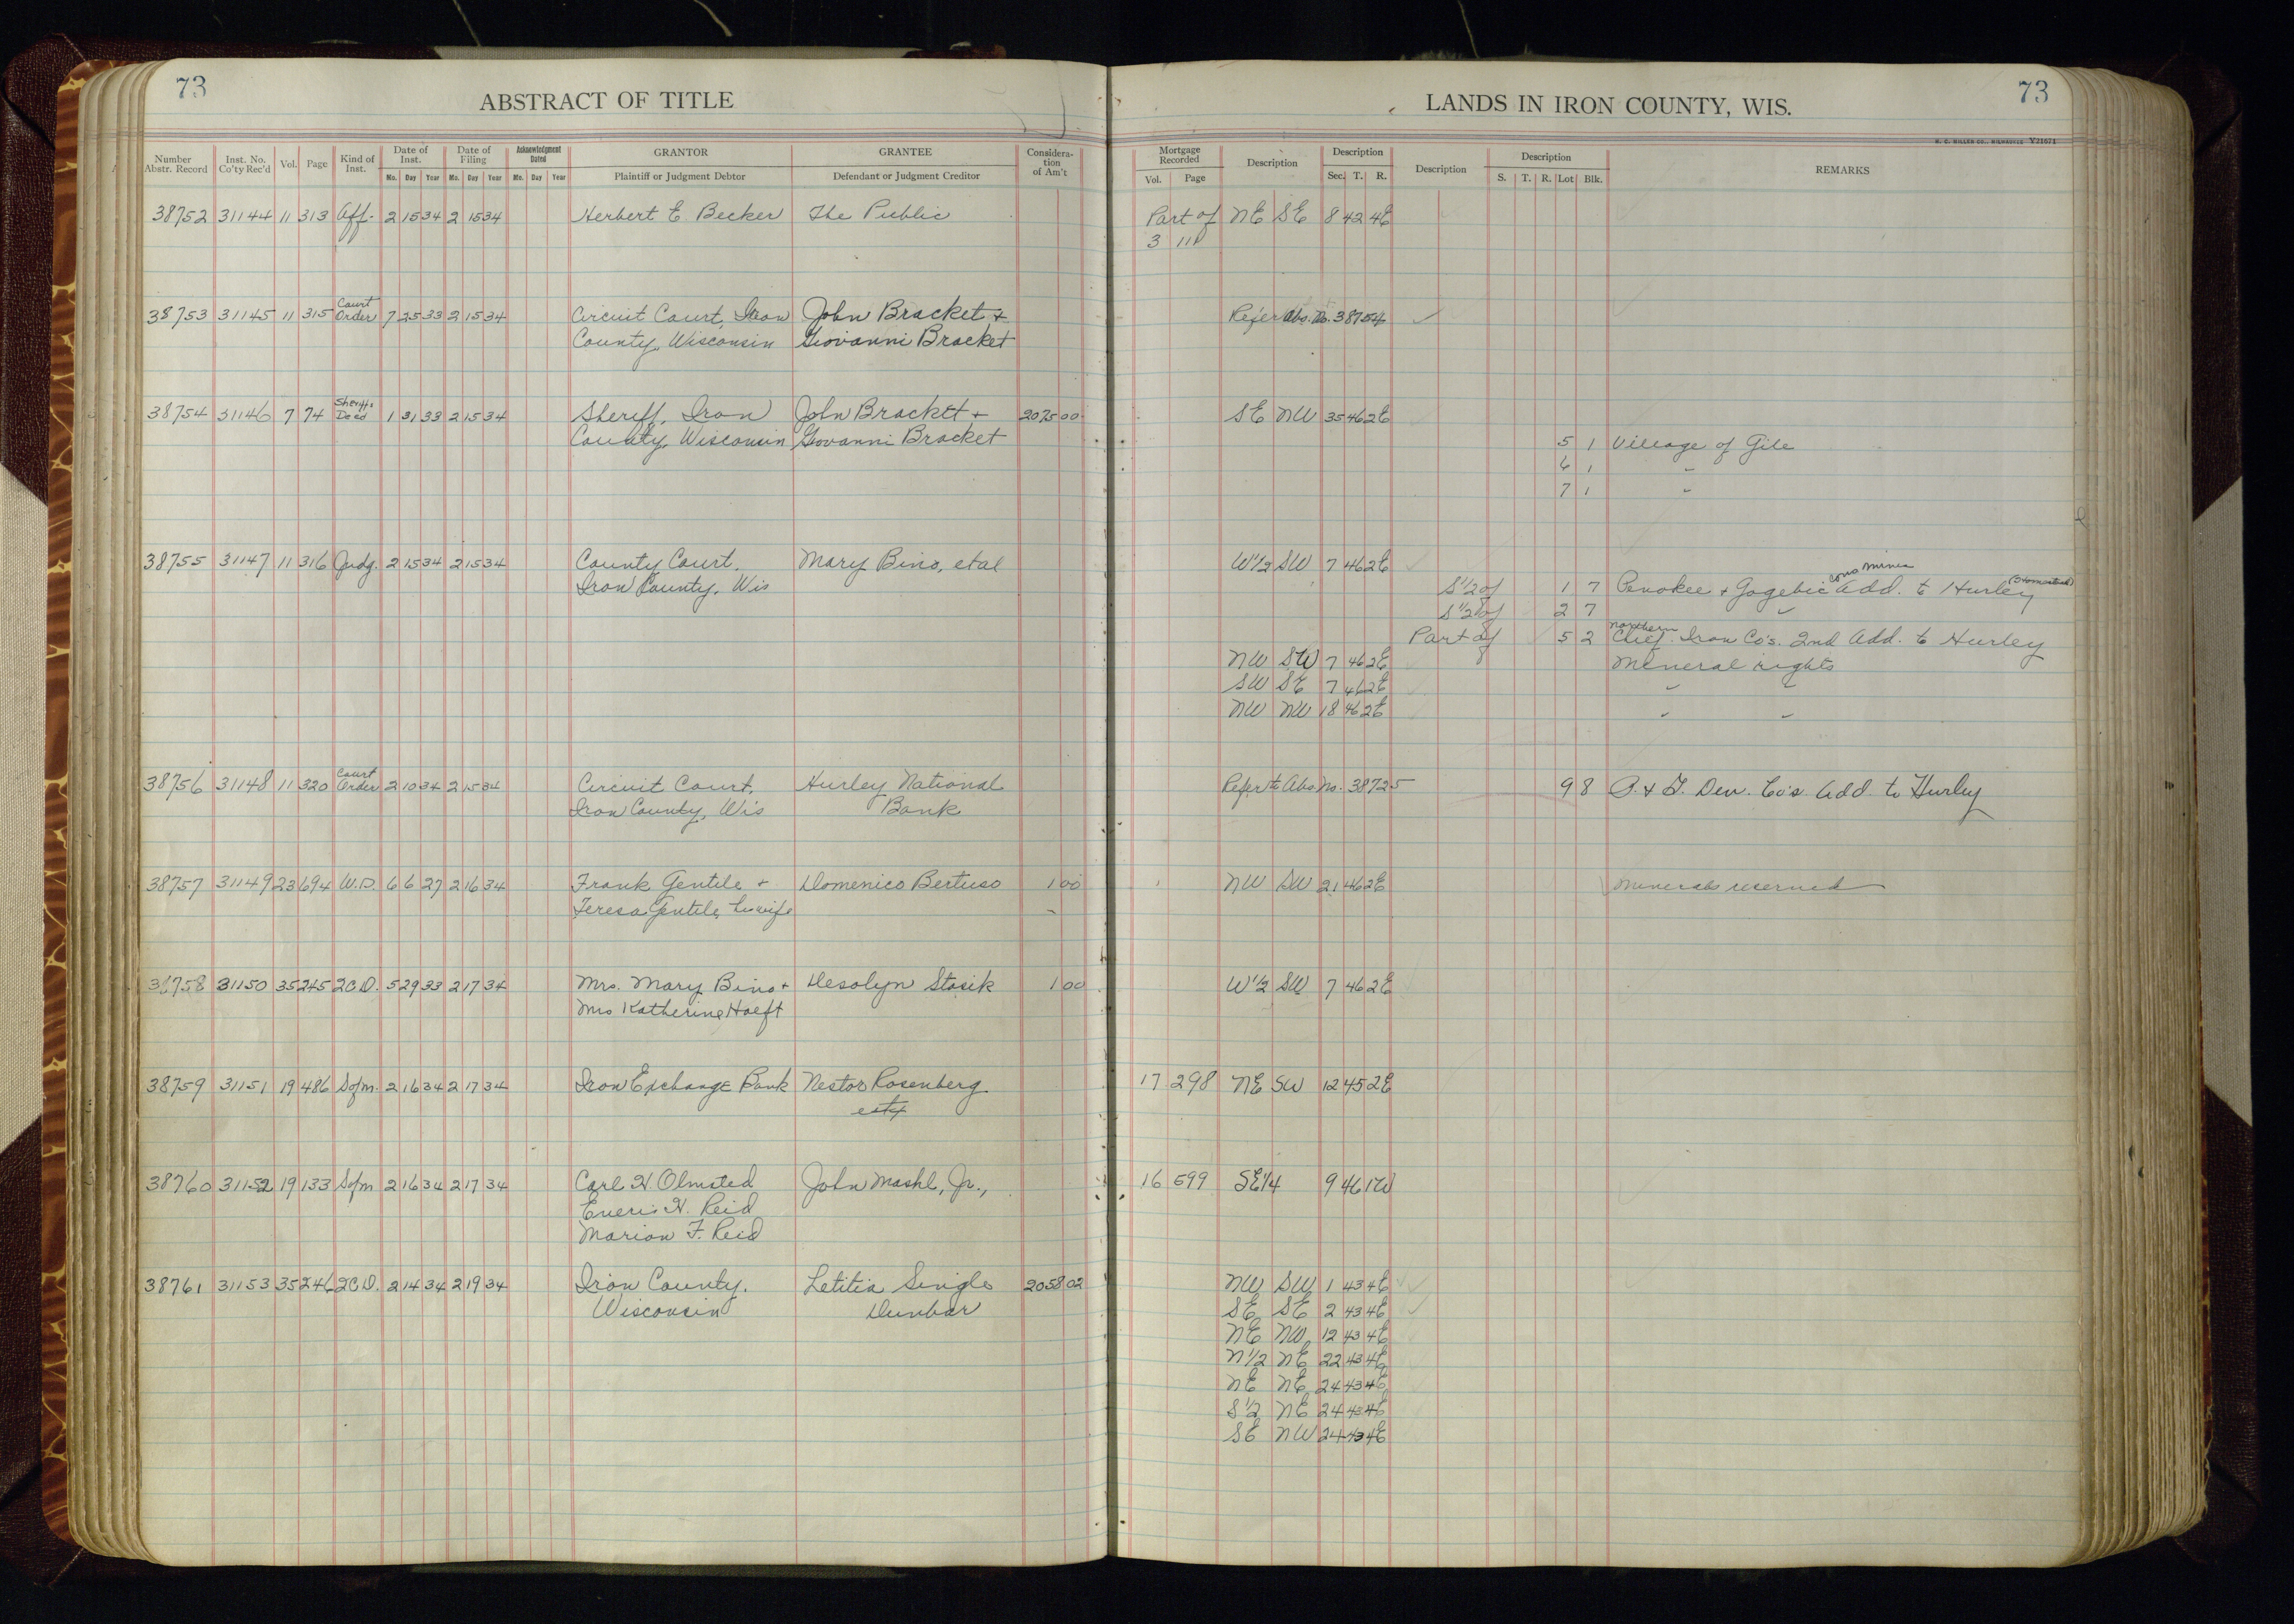 73
ABSTRACT OF TITLE
Number Abstr. Record Inst. No. Co'ty Rec'd Vol. Page Kind of Inst. Date of Inst. Mo. Day Year Date of Filing Mo. Day Year Acknowledgment Dated Mo. Day Year GRANTOR Plaintiff or Judgment Debtor GRANTEE Defendant or Judgment Creditor Considera-tion of Am't
38752 31144 11 313 Aff. 2 15 34 2 15 34 Herbert E. Becker The Public
38753 31145 11 315 Court Order 7 25 33 2 15 34 Circuit Court, Iron John Bracket +
County, Wisconsin Giovanni Bracket
38754 31146 7 74 Sheriff's Deed 1 31 33 2 15 34 Sheriff, Iron John Bracket + 2075 00
County, Wisconsin Govanni Bracket
38755 31147 11 316 Judg. 2 15 34 2 15 34 County Court, Mary Bino, et al
Iron County, Wis
38756 31148 11 320 Court Order 2 10 34 2 15 34 Circuit Court, Hurley National
Iron County, Wis Bank
38757 31149 23 694 W.D. 6 6 27 2 16 34 Frank Gentile + Domenico Bertuso 1 00
Teresa Gentile, his wife
38758 31150 35 245 2CD. 5 29 33 2 17 34 Mrs. Mary Bino + Desolyn Stasik 1 00
Mrs Katherine Hoeft
38759 31151 19 486 Sofm. 2 16 34 2 17 34 Iron Exchange Bank Nestor Rosenberg
etx
38760 31152 19 133 Sofm 2 16 34 2 17 34 Carl H. Olmsted John Mashl, Jr.,
H. Reid
Marion F. Reid
38761 31153 35 246 2CD. 2 14 34 2 19 34 Iron County, Letitia Single 2058 02
Wisconsin Dunbar
73
LANDS IN IRON COUNTY, WIS.
H. C. MILLER CO., MILWAUKEE Y21671
Mortgage Recorded Vol. Page Description Description Sec. T. R. Description Description S. T. R. Lot Blk. REMARKS
Part of NE SE 8 42 4E
3 111
Refer Abs. No. 38754
SE NW 35 46 2E
5 1 Village of Gile
6 1 "
7 1 "
W1/2 SW 7 46 2E
S1/2 of 1 7 Penokee + Gogebic Cons Mines Add. to Hurley (Homestead)
S1/2 of 2 7 "
Part of 5 2 Northern Chief Iron Co's. 2nd Add. to Hurley
NW SW 7 46 2E Mineral rights
SW SE 7 46 2E " "
NW NW 18 46 2E " "
Refer to Abs No. 38725 9 8 P. & G. Dev. Co's Add to Hurley
NW SW 21 46 2E Minerals reserved
W1/2 SW 7 46 2E
17 298 NE SW 12 45 2E
16 599 SE1/4 9 46 1W
NW SW 1 43 4E
SE SE 2 43 4E
NE NW 12 43 4E
N1/2 NE 22 43 4E
NE NE 24 43 4E
S1/2 NE 24 43 4E
SE NW 24 43 4E